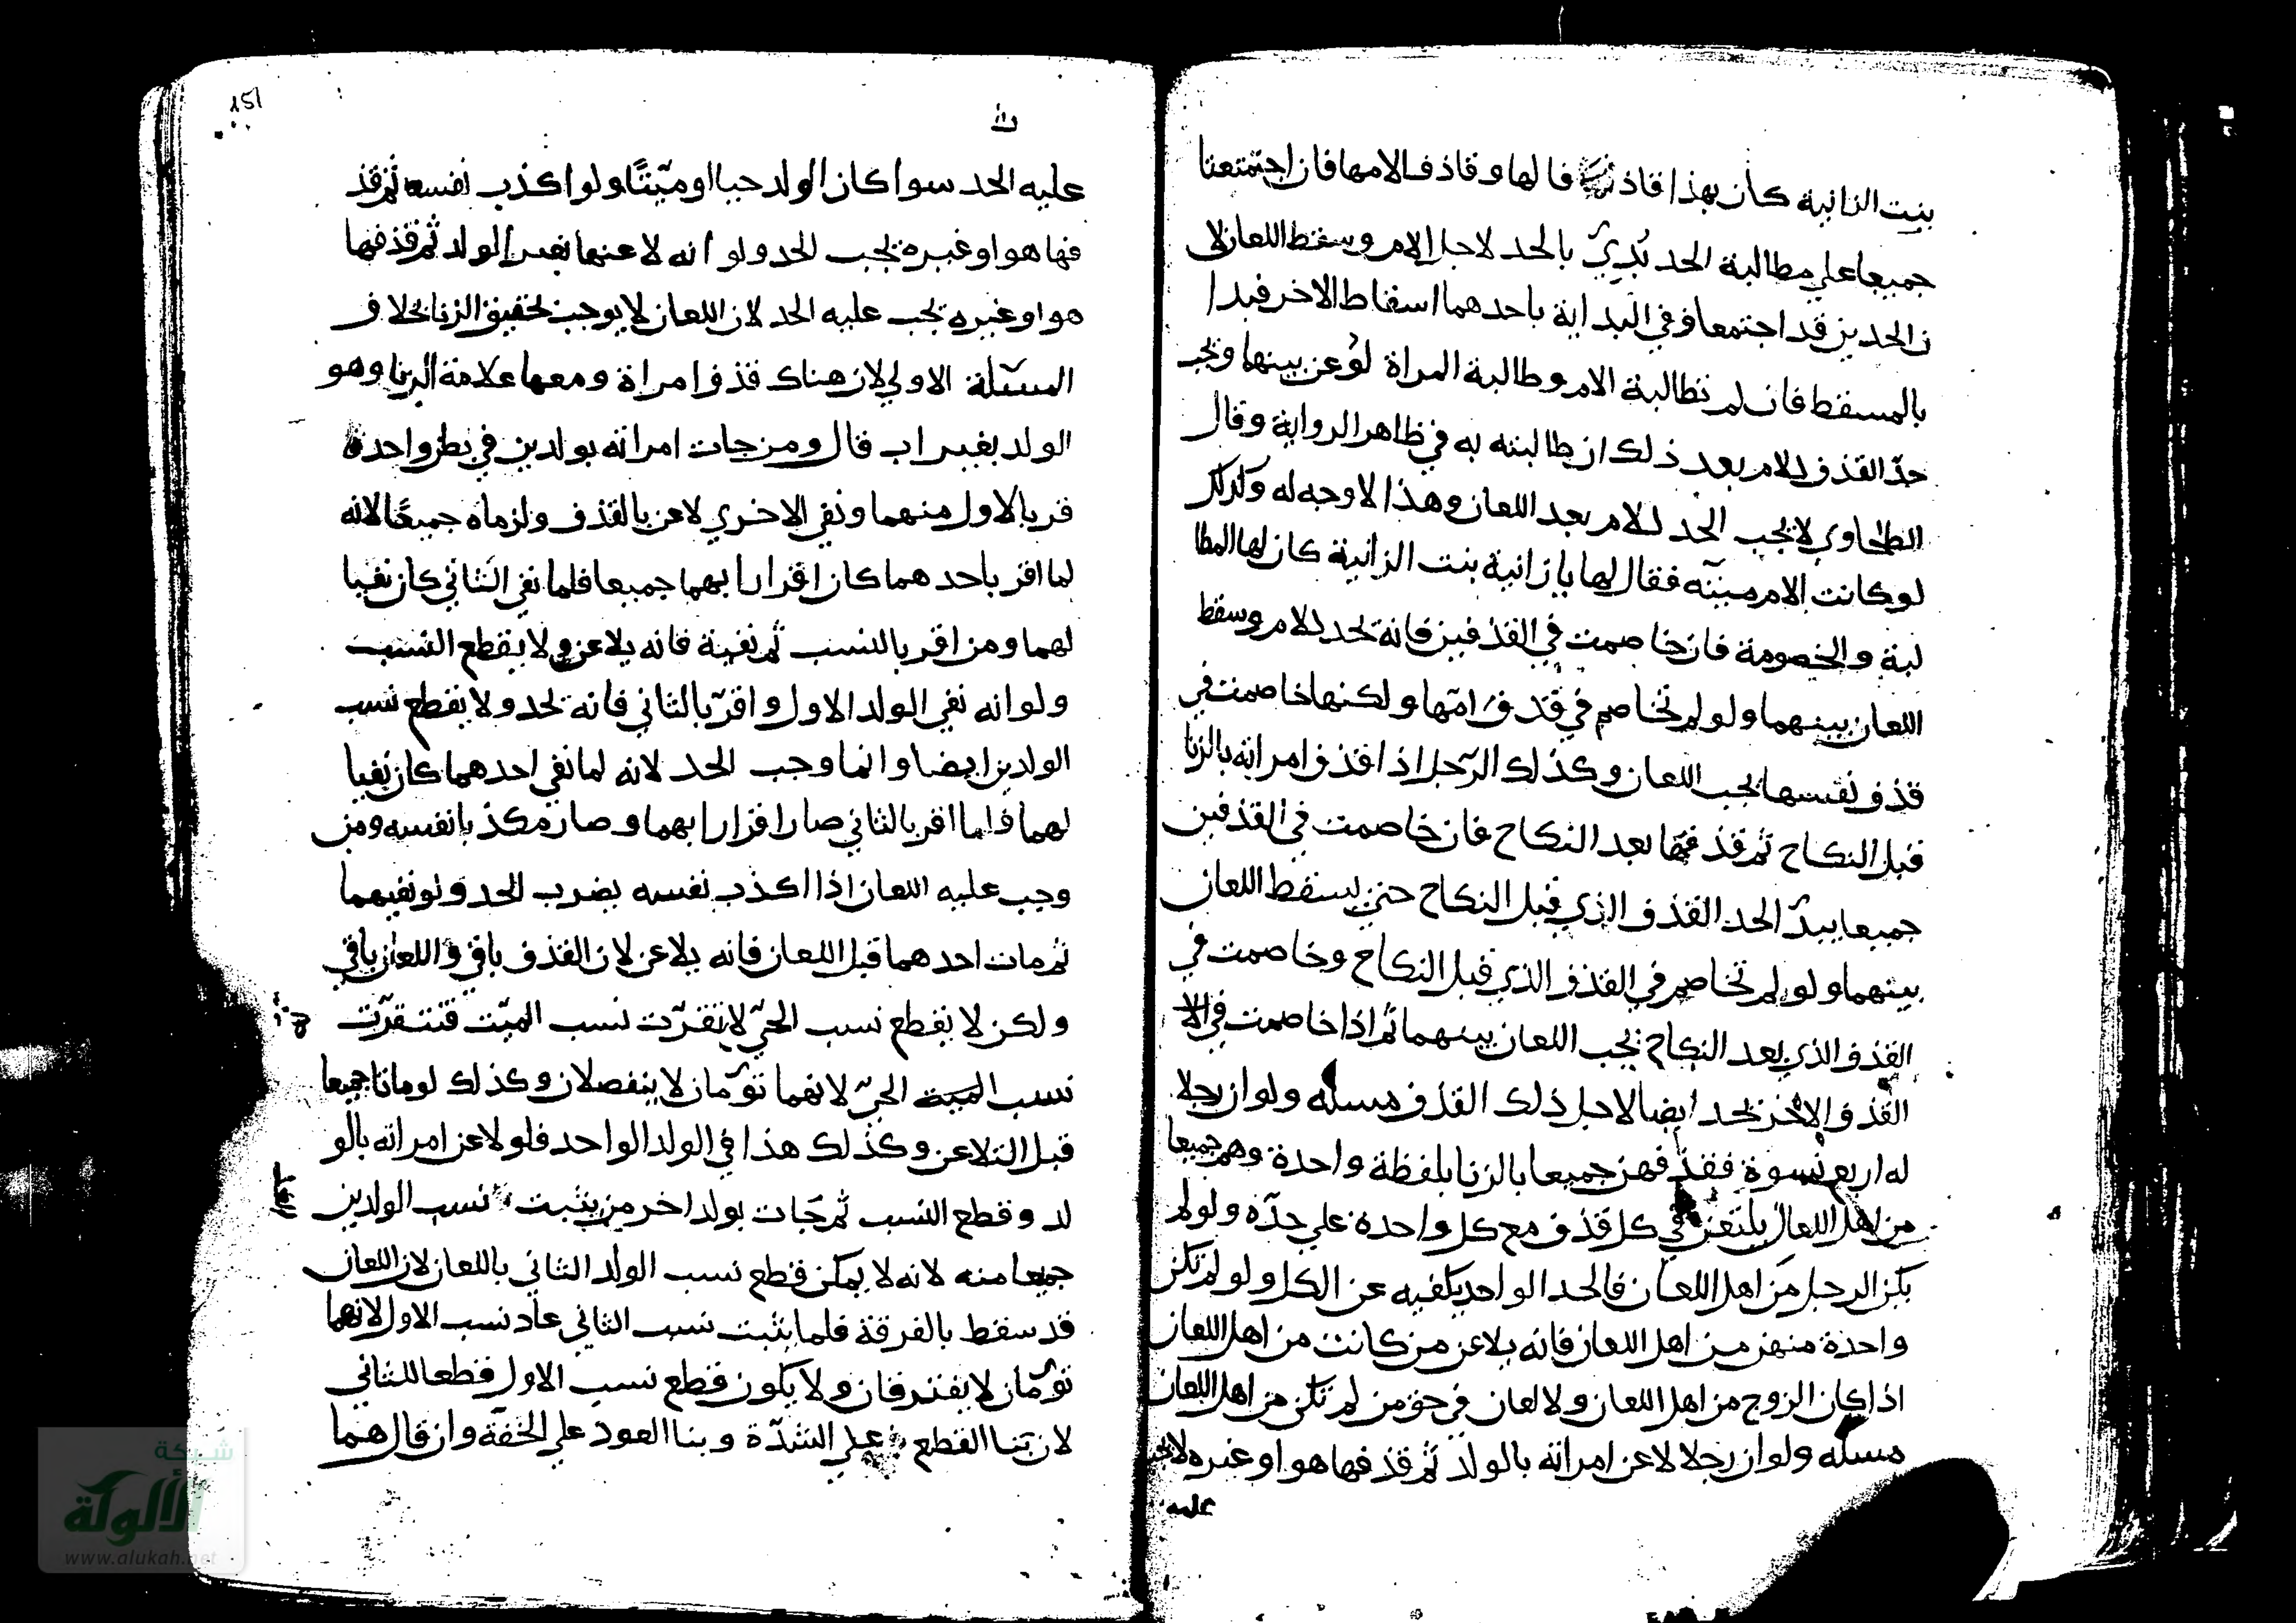 بنت الزانية كان بهذا قاذفا لها وقاذف لامها فان اجتمعتا
جميعا علي مطالبة الحد بُديَ بالحد لاجل الام وسقط اللعان لا
ن الحدين قد اجتمعا وفي البداية باحدهما اسقاط الاخر فيبدا
بالمسقط فان لم تطالبة الام وطالبة المراة لوعن بينها ويجب
حدّ القذف للام بعد ذلك ان طالبته به في ظاهر الرواية وقال
الطحاوي لا يجب الحد للام بعد اللعان وهذا لا وجه له وكذلك
لو كانت الام ميتة فقال لها يا زانية بنت الزانية كان لها المطا
لبة والخصومة فان خاصمت في القذفين فانه يحد للام وسقط
اللعان بينهما ولو لم تخاصم في قذف امّها ولكنها خاصمت في
قذف نفسها يجب اللعان وكذلك الرّجل اذا قذف امراته بالزنا
قبل النكاح ثم قذفها بعد النكاح فان خاصمت في القذفين
جميعا يبدّا الحد القذف الذي قبل النكاح حتي يسقط اللعان
بينهما ولو لم تخاصم في القذف الذي قبل النكاح وخاصمت في
القذف الذي بعد النكاح يجب اللعان بينهما ثم اذا خاصمت في الا
القذف الاخر يحد ايضا لاجل ذلك القذف مسله ولو ان رجلا
له اربع نسوة فقذفهن جميعا بالزنا بلفظة واحدة وهم جميعا
من اهل اللعان يلتعن في كل قذف مع كل واحدة علي حدّه ولو لم
يكن الرجل من اهل اللعان فالحد الواحد يكفيه عن الكل ولو لم تكن
واحدة منهن من اهل اللعان فانه يلاعن من كانت من اهل اللعان
اذا كان الزوج من اهل اللعان ولا لعان في حق من لم تكن من اهل اللعان
مسله ولو ان رجلا لاعن امراته بالولد ثم قذفها هو او غيره لا يجب
عليه
151
عليه الحد سوا كان الولد حيا او ميّتًا ولو اكذب نفسه ثم قذ
فها هو او غيره يجب الحد ولو انه لاعنها بغير الولد ثم قذفها
هو او غيره يجب عليه الحد لان اللعان لا يوجب تحقيق الزنا بخلاف
المسئلة الاولي لان هناك قذف امراة ومعها علامة الزنا وهو
الولد بغير اب قال ومن جات امراته بولدين في بطن واحدة
قر بالاول منهما ونفي الاخري لاعن بالقذف ولزماه جميعًا لانه
لما اقر باحدهما كان اقرارا بهما جميعا فلما نفي الثاني كان نفيا
لهما ومن اقر بالنسب ثم نفية فانه يلاعن ولا يقطع النسب
ولو انه نفي الولد الاول واقرّ بالثاني فانه يحد ولا يقطع نسب
الولدين ايضا وانما وجب الحد لانه لما نفي احدهما كان نفيا
لهما فاما اقر بالثاني صار اقرارا بهما وصار مكذبا نفسه ومن
وجب عليه اللعان اذا اكذب نفسه يضرب الحد ولو نفيهما
ثم مات احدهما قبل اللعان فانه يلاعن لان القذف باقي واللعان باقي
ولكن لا يقطع نسب الحيّ لا تقرّت نسب الميّت فتتقرّت
نسب الميت الحيّ لانهما توّمان لا ينفصلان وكذلك لو ماتا جميعا
قبل التلاعن وكذلك هذا في الولد الواحد فلو لاعن امراته بالو
لد وقطع النسب ثم جَات بولد اخر من يثبت نسب الولدين
جميعا منه لانه لا يمكن قطع نسب الولد الثاني باللعان لان اللعان
قد سقط بالفرقة فلما يثبت نسب الثاني عاد نسب الاول لانهما
توّمان لا يفترقان ولا يكون قطع نسب الاول قطعا للثاني
لان بنا القطع علي الشدّة وبنا العود علي الخفّة وان قال هما
شبكة
الألوكة
www.alukah.net